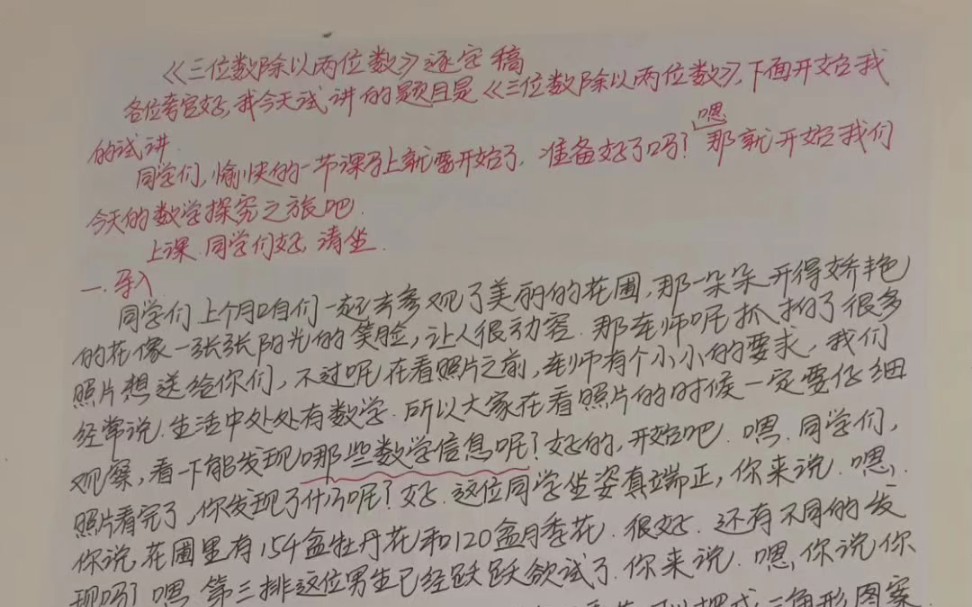 《三位数除以两位数》逐字稿
各位考官好,我今天试讲的题目是《三位数除以两位数》,下面开始我
的试讲.
嗯
同学们,愉快的一节课马上就要开始了.准备好了吗?那就开始我们
今天的数学探究之旅吧.
上课.同学们好,请坐.
一.导入
同学们上个月咱们一起去参观了美丽的花圃,那一朵朵开得娇艳
的花像一张张阳光的笑脸,让人很动容.那老师呢抓拍了很多
照片想送给你们,不过呢在看照片之前,老师有个小小的要求,我们
经常说.生活中处处有数学.所以大家在看照片的时候一定要仔细
观察,看一下能发现哪些数学信息呢?好的,开始吧.嗯.同学们,
照片看完了,你发现了什么呢?好.这位同学坐姿真端正,你来说.嗯,
你说花圃里有154盆牡丹花和120盆月季花.很好.还有不同的发
现吗?嗯.第三排这位男生已经跃跃欲试了.你来说.嗯,你说你
三角形图案